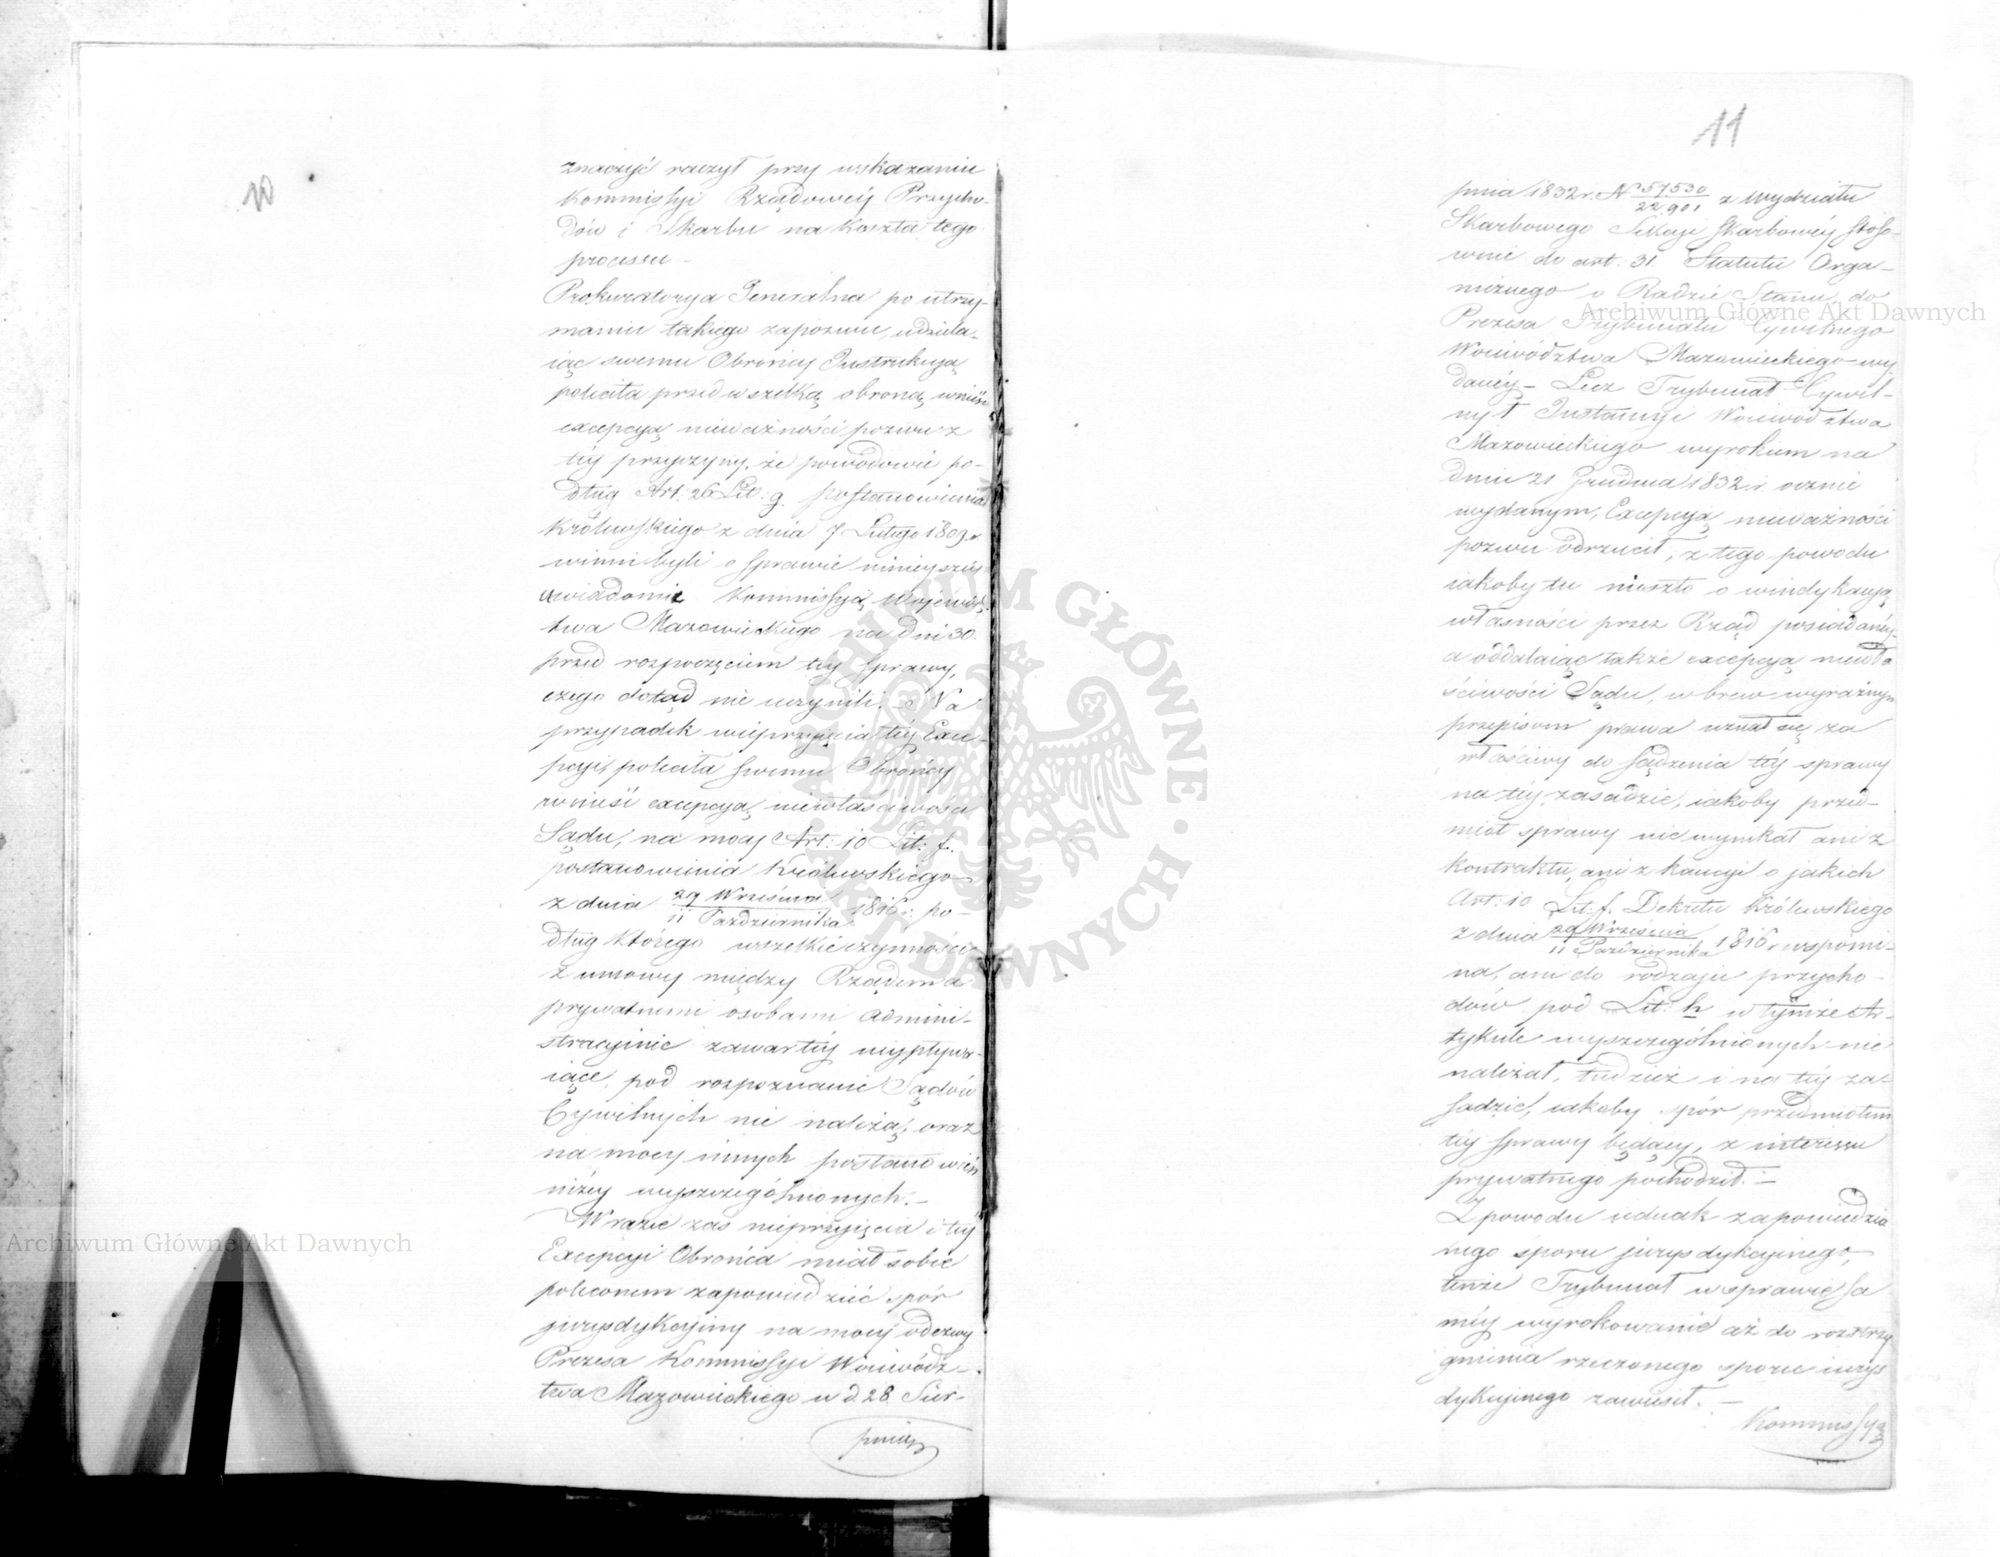 10
znaczyć raczył przy wskazaniu
Kommissyi Rządowéy Przycho-
dów i Skarbu na koszta tego
processu –
Prokuratorya Generalna po utrzy-
maniu takiego zapozwu, udziela-
iąc swemu Obrońcy Instrukcyą
poleciła przed wszelką obroną wnieść
excepcyą nieważności pozwu z
téy przyczyny, że powodowie po-
dług Art: 26 Lit: g. postanowienia
Królewskiego z dnia 7 Lutego 1809 r.
winni byli o sprawie ninieyszéy
uwiadomić Kommissyą Wojewódz-
twa Mazowieckiego na dni 30.
przed rozpoczęciem téy sprawy,
czego dotąd nie uczynili. – Na
przypadek nieprzyięcia téy Exce-
pcyi, poleciła swemu Obrońcy
wnieść excepcyą niewłaściwości
Sądu, na mocy Art: 10 Lit: f.
postanowienia Królewskiego
z dnia 29 Września / 11 Października 1816 r: po-
dług którego wszelkie czynności
z umowy między Rządem a
prywatnemi osobami admini-
stracyinie zawartéy wypływa-
iące, pod rozpoznanie Sądów
Cywilnych nie należą, oraz
na mocy innych postanowień
niżéy wyszczególnionych. –
W razie zaś nieprzyięcia i téy
Excepcyi Obrońca miał sobie
poleconem zapowiedzieć spór
jurysdykcyiny na mocy odezwy
Prezesa Kommissyi Woiewódz-
twa Mazowieckiego w d. 28 Sier-
pnia
11
pnia 1832 r. N° 57530/22901 z Wydziału
Skarbowego Sekcyi Skarbowéy stoso-
wnie do art: 31 Statutu Orga-
nicznego o Radzie Stanu, do
Prezesa Trybunału Cywilnego
Woiewództwa Mazowieckiego wy-
danéy – Lecz Trybunał Cywil-
ny I Instancyi Woiewództwa
Mazowieckiego wyrokiem na
dniu 21 Grudnia 1832 r. ocznie
wydanym, Excepcyą nieważności
pozwu odrzucił, z tego powodu
iakoby tu nieszło o windykacyą
własności przez Rząd posiadanéy,
a oddalaiąc także excepcyą niewła-
ściwości Sądu, wbrew wyraźnym
przepisom prawa uznał się za
właściwy do sądzenia téy sprawy
na téy zasadzie, iakoby przed-
miot sprawy nie wynikał ani z
kontraktu, ani z kaucyi o jakich
Art: 10 Lit: f. Dekretu Królewskiego
z dnia 29 Września / 11 Października 1816 r. wspomi-
na, ani do rodzaju przycho-
dów pod Lit: h w tymże Ar-
tykule wyszczególnionych nie
należał, tudzież i na téy za-
sadzie, iakoby spór przedmiotem
téy sprawy będący, z interessu
prywatnego pochodził. –
Z powodu iednak zapowiedzia-
nego sporu jurysdykcyinego,
tenże Trybunał w sprawie sa-
méy wyrokowanie aż do rozstrzy-
gnienia rzeczonego sporu iurys-
dykcyinego zawiesił. –
Kommissya
Archiwum Główne Akt Dawnych
Archiwum Główne Akt Dawnych
ARCHIWUM GŁÓWNE · AKT DAWNYCH ·